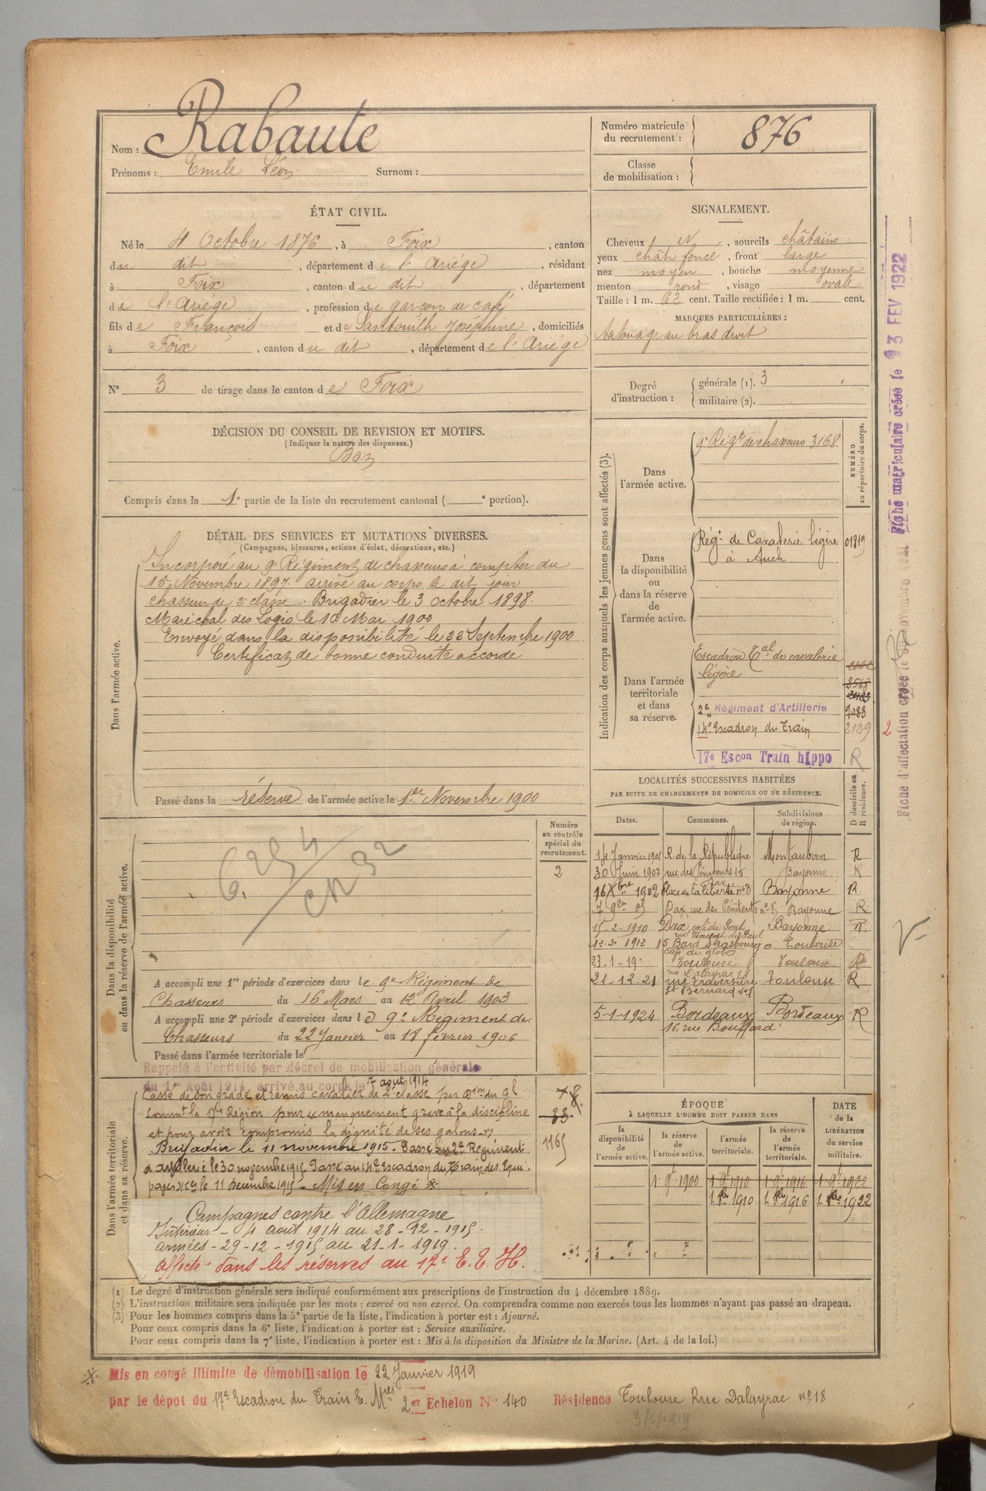 Nom : Rabaute
Prénoms : Emile Léon Surnom :
Numéro matricule du recrutement : 876
Classe de mobilisation :
ÉTAT CIVIL.
Né le 4 Octobre 1876, à Foix, canton
du dit, département de l'Ariège, résidant
à Foix, canton du dit, département
de l'Ariège, profession de garçon de café
fils de François et de Joséphine, domiciliés
à Foix, canton du dit, département de l'Ariège
N° 3 de tirage dans le canton de Foix
DÉCISION DU CONSEIL DE REVISION ET MOTIFS.
(Indiquer la nature des dispenses.)
Bon
Compris dans la 1e partie de la liste du recrutement cantonal ( e portion).
SIGNALEMENT.
Cheveux et, sourcils châtains
yeux chât foncé, front large
nez moyen, bouche moyenne
menton rond, visage ovale
Taille : 1 m. 62 cent. Taille rectifiée : 1 m. cent.
MARQUES PARTICULIÈRES :
tatouage au bras droit
Degré d'instruction : générale (1). 3
militaire (2).
DÉTAIL DES SERVICES ET MUTATIONS DIVERSES.
(Campagnes, blessures, actions d'éclat, décorations, etc.)
Dans l'armée active.
Incorporé au 9e Régiment de chasseurs à compter du
15 Novembre 1897 arrivé au corps le dit jour
chasseur de 2e classe. Brigadier le 3 Octobre 1898.
Maréchal des Logis le 10 Mai 1900
Envoyé dans la disponibilité le 22 Septembre 1900
Certificat de bonne conduite accordé
Passé dans la réserve de l'armée active le 1er Novembre 1900
Indication des corps auxquels les jeunes gens sont affectés (3).
NUMÉRO au répertoire du corps.
Dans l'armée active.
9e Régt de chasseurs 3168
Dans la disponibilité ou dans la réserve de l'armée active.
Régt de Cavalerie légère 01819
à Auch
Dans l'armée territoriale et dans sa réserve.
Escadron Tal de cavalerie
légère
2e Régiment d'Artillerie
14e Escadron du Train 2189
17e Escon Train hippo R
Dans la disponibilité ou dans la réserve de l'armée active.
Numéro au contrôle spécial du recrutement.
2
A accompli une 1re période d'exercices dans le 9e Régiment de
Chasseurs du 16 Mars au 12 Avril 1903
A accompli une 2e période d'exercices dans le 9e Régiment de
Chasseurs du 22 Janvier au 18 février 1906
Passé dans l'armée territoriale le
Rappelé à l'activité par décret de mobilisation générale
du 1er Août 1914, arrivé au corps le 4 août 1914
Dans l'armée territoriale et dans sa réserve.
Cassé de son grade et remis cavalier de 2e classe par on du gl
comnt la 17e Région pour un manquement grave à la discipline
et pour avoir compromis la dignité de ses galons
Brigadier le 11 novembre 1915. Passé au 2e Régiment
d'artillerie le 30 novembre 1915 Passé au 14e Escadron du Train des Equi
pages le 11 Décembre 1915 Mis en Congé *
1165
Campagnes contre l'allemagne
Intérieur - 4 août 1914 au 28-12-1915.
armées - 29-12-1915 au 21-1-1919.
affecté dans les réserves au 17e E. T. H.
LOCALITÉS SUCCESSIVES HABITÉES
PAR SUITE DE CHANGEMENTS DE DOMICILE OU DE RÉSIDENCE.
Dates. Communes. Subdivisions de région. D domicile ou R résidence.
Janvier 1901 R. de la République Montauban R
30 Juin 1902 Bayonne R
16 Xbre 1902 Place de la liberté n° 8 Bayonne R
Dax rue des Pénitents n° 5 Bayonne R
15-2-1910 Dax café du Pont Bayonne R
12-2-1912 15 Board Strasbourg Toulouse
café du globe
23-1-19 Toulouse Toulouse R
rue Dalayrac 18
21-12-21 rue Traversière Toulouse R
St Bernard
5-1-1924 Bordeaux Bordeaux R
16 rue Bouffard
ÉPOQUE
À LAQUELLE L'HOMME DOIT PASSER DANS
la disponibilité de l'armée active. la réserve de l'armée active. l'armée territoriale. la réserve de l'armée territoriale.
DATE de la LIBÉRATION du service militaire.
1. 9bre 1900 1. 9bre 1910 1. 9bre 1916 1. 9bre 1922
1. 8bre 1910 1. 8bre 1916 1. 8bre 1922
(1) Le degré d'instruction générale sera indiqué conformément aux prescriptions de l'instruction du 4 décembre 1889.
(2) L'instruction militaire sera indiquée par les mots : exercé ou non exercé. On comprendra comme non exercés tous les hommes n'ayant pas passé au drapeau.
(3) Pour les hommes compris dans la 5e partie de la liste, l'indication à porter est : Ajourné.
Pour ceux compris dans la 6e liste, l'indication à porter est : Service auxiliaire.
Pour ceux compris dans la 7e liste, l'indication à porter est : Mis à la disposition du Ministre de la Marine. (Art. 4 de la loi.)
* Mis en congé illimité de démobilisation le 22 Janvier 1919
par le dépôt du 17e Escadron du Train E. Mres 2er Echelon N° 140 Résidence Toulouse Rue Dalayrac n° 18
Fiche matriculaire créée le 13 FEV 1922
Fiche d'affectation créée le